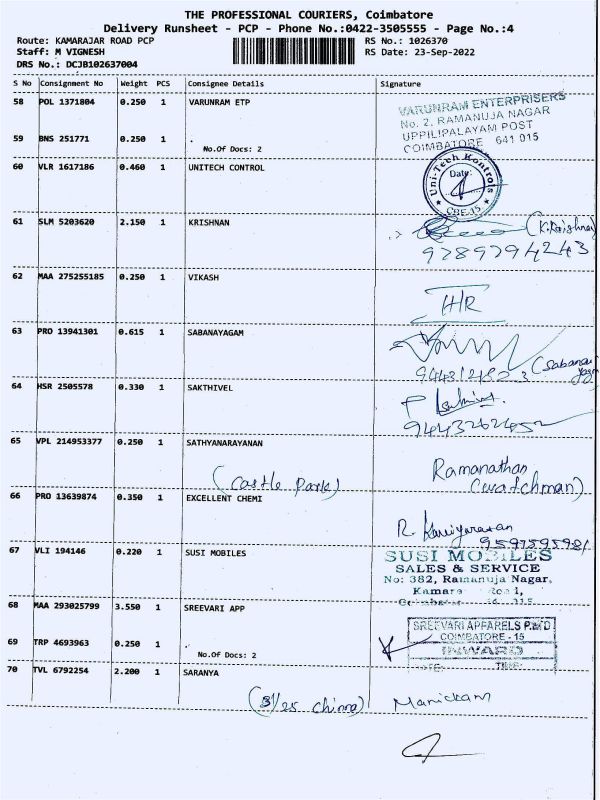 THE PROFESSIONAL COURIERS, Coimbatore
Delivery Runsheet - PCP - Phone No.:0422-3505555 - Page No.:4
Route: KAMARAJAR ROAD PCP RS No.: 1026370
Staff: M VIGNESH RS Date: 23-Sep-2022
DRS No.: DCJB102637004
S No Consignment No Weight PCS Consignee Details Signature
58 POL 1371804 0.250 1 VARUNRAM ETP
VARUNRAM ENTERPRISERS
No. 2, RAMANUJA NAGAR
UPPILIPALAYAM POST
COIMBATORE 641 015
59 BNS 251771 0.250 1 .
No.Of Docs: 2
60 VLR 1617186 0.460 1 UNITECH CONTROL
Uni-Tech Kontrols
Date:
CBE-15
61 SLM 5203620 2.150 1 KRISHNAN
(K. Krishnan)
9789794243
62 MAA 275255185 0.250 1 VIKASH
63 PRO 13941301 0.615 1 SABANAYAGAM
(Sabana
64 HSR 2505578 0.330 1 SAKTHIVEL
9443262452
65 VPL 214953377 0.250 1 SATHYANARAYANAN
(Castle Park) Ramanathan
(watchman)
66 PRO 13639874 0.350 1 EXCELLENT CHEMI
R.
9597595981
67 VLI 194146 0.220 1 SUSI MOBILES
SUSI MOBILES
SALES & SERVICE
No: 382, Ramanuja Nagar,
68 MAA 293025799 3.550 1 SREEVARI APP
SREEVARI APPARELS P.LTD
COIMBATORE - 15
INWARD
DATE: TIME:
69 TRP 4693963 0.250 1 .
No.Of Docs: 2
70 TVL 6792254 2.200 1 SARANYA
Manickam